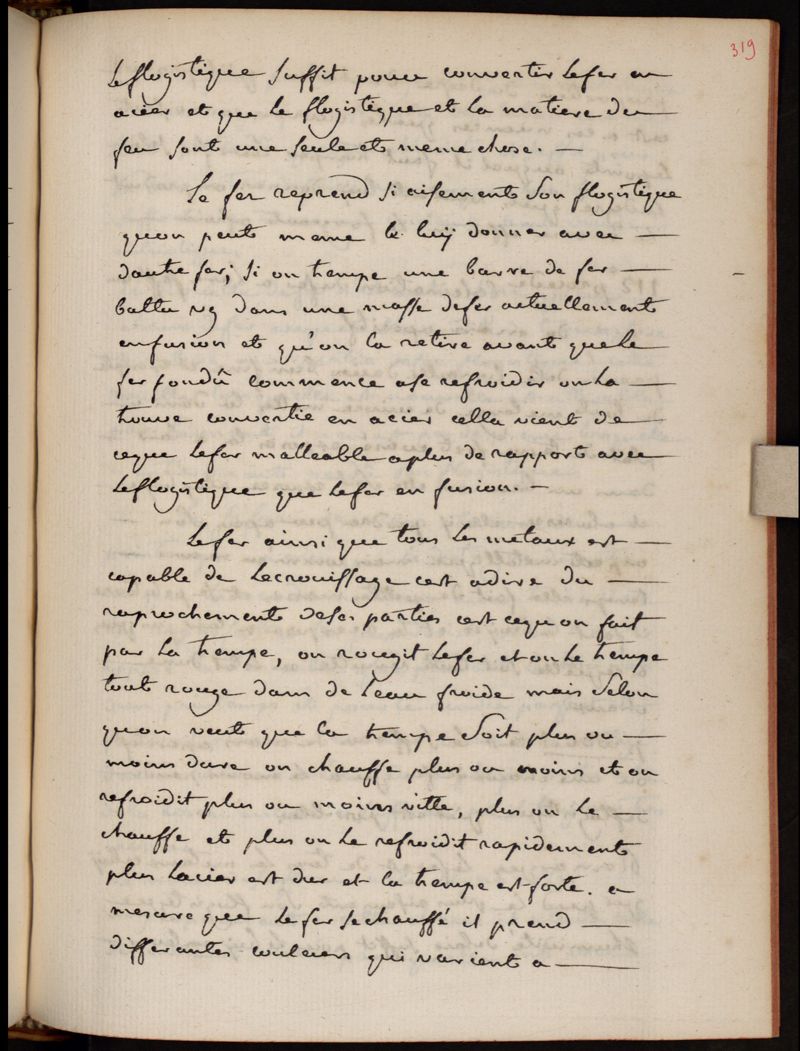 319
Leflogistique suffit pour convertir Lefer en
acier et que Le flogistique et La matiere du
feu sont une seule et meme chose. —
Le fer reprend si aisement son flogistique
quon peut meme le luy donner avec —
dautre fer; si on trempe une barre de fer —
battu dans une masse defer actuellement
enfusion et qu'on la retire avant quele
fer fondû commence ase refroidir on La —
trouve convertie en acier cella vient de
ceque Lefer malleable aplus de rapport avec
Leflogistique que Lefer en fusion. —
Lefer ainsi que tous Les metaux est —
capable de Lecrouissage cest adire du —
raprochement deses parties cest cequ on fait
par La trempe, on rougit Lefer et on Le trempe
tout rouge dans de Leau froide mais selon
quon veut que la trempe soit plus ou —
moins dure on chauffe plus ou moins et on
refroidit plus ou moins ville, plus on Le —
chauffe et plus on Le refroidit rapidement
plus Lacier est dur et la trempe est forte. a
mesure que Le fer sechauffé il prend —
differantes couleurs qui varient a —